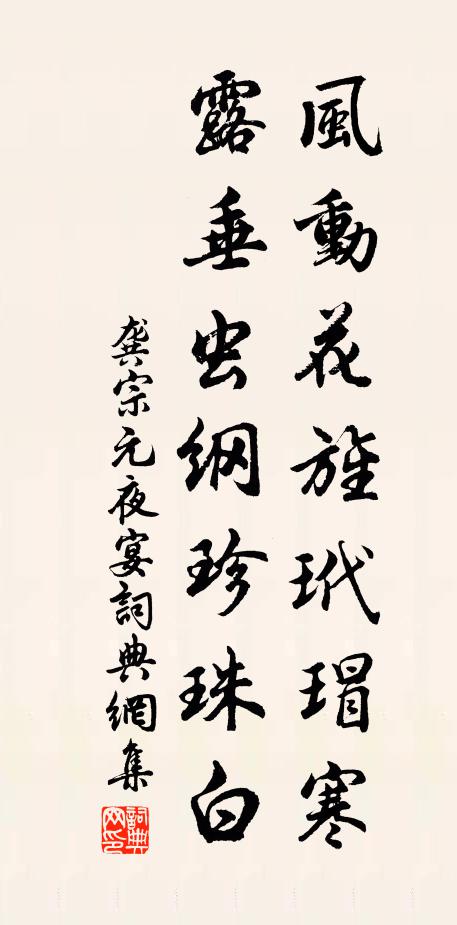 風動花旌玳瑁寒
露垂虫網珍珠白
龔宗元夜宴詞典網集
詞典網印